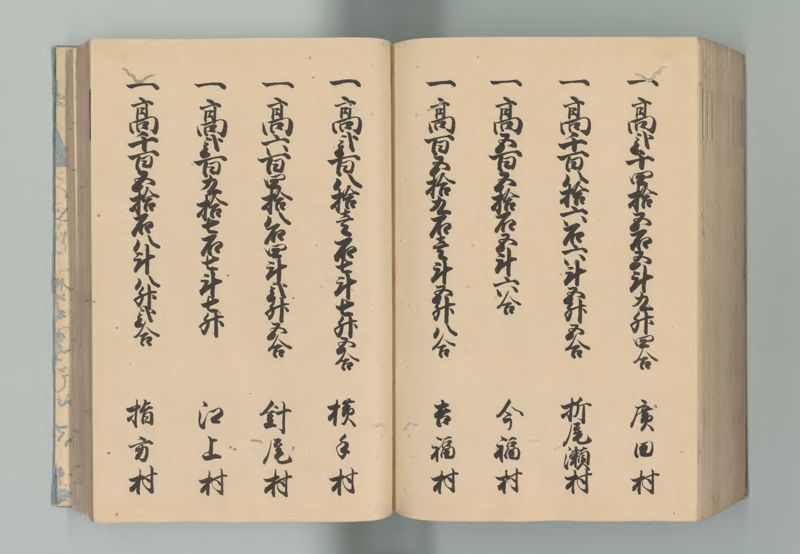 一高弐千四拾五石五斗九升四合 廣田村
一高千百八拾六石六斗五升五合 折尾瀬村
一高五百五拾石五斗六合 今福村
一高百五拾九石壱斗五升八合 吉福村
一高弐百八拾壱石七斗七升五合 横手村
一高六百四拾八石四斗弐升五合 針尾村
一高弐百九拾七石七斗七升 江上村
一高千百五拾石八斗八升弐合 指方村